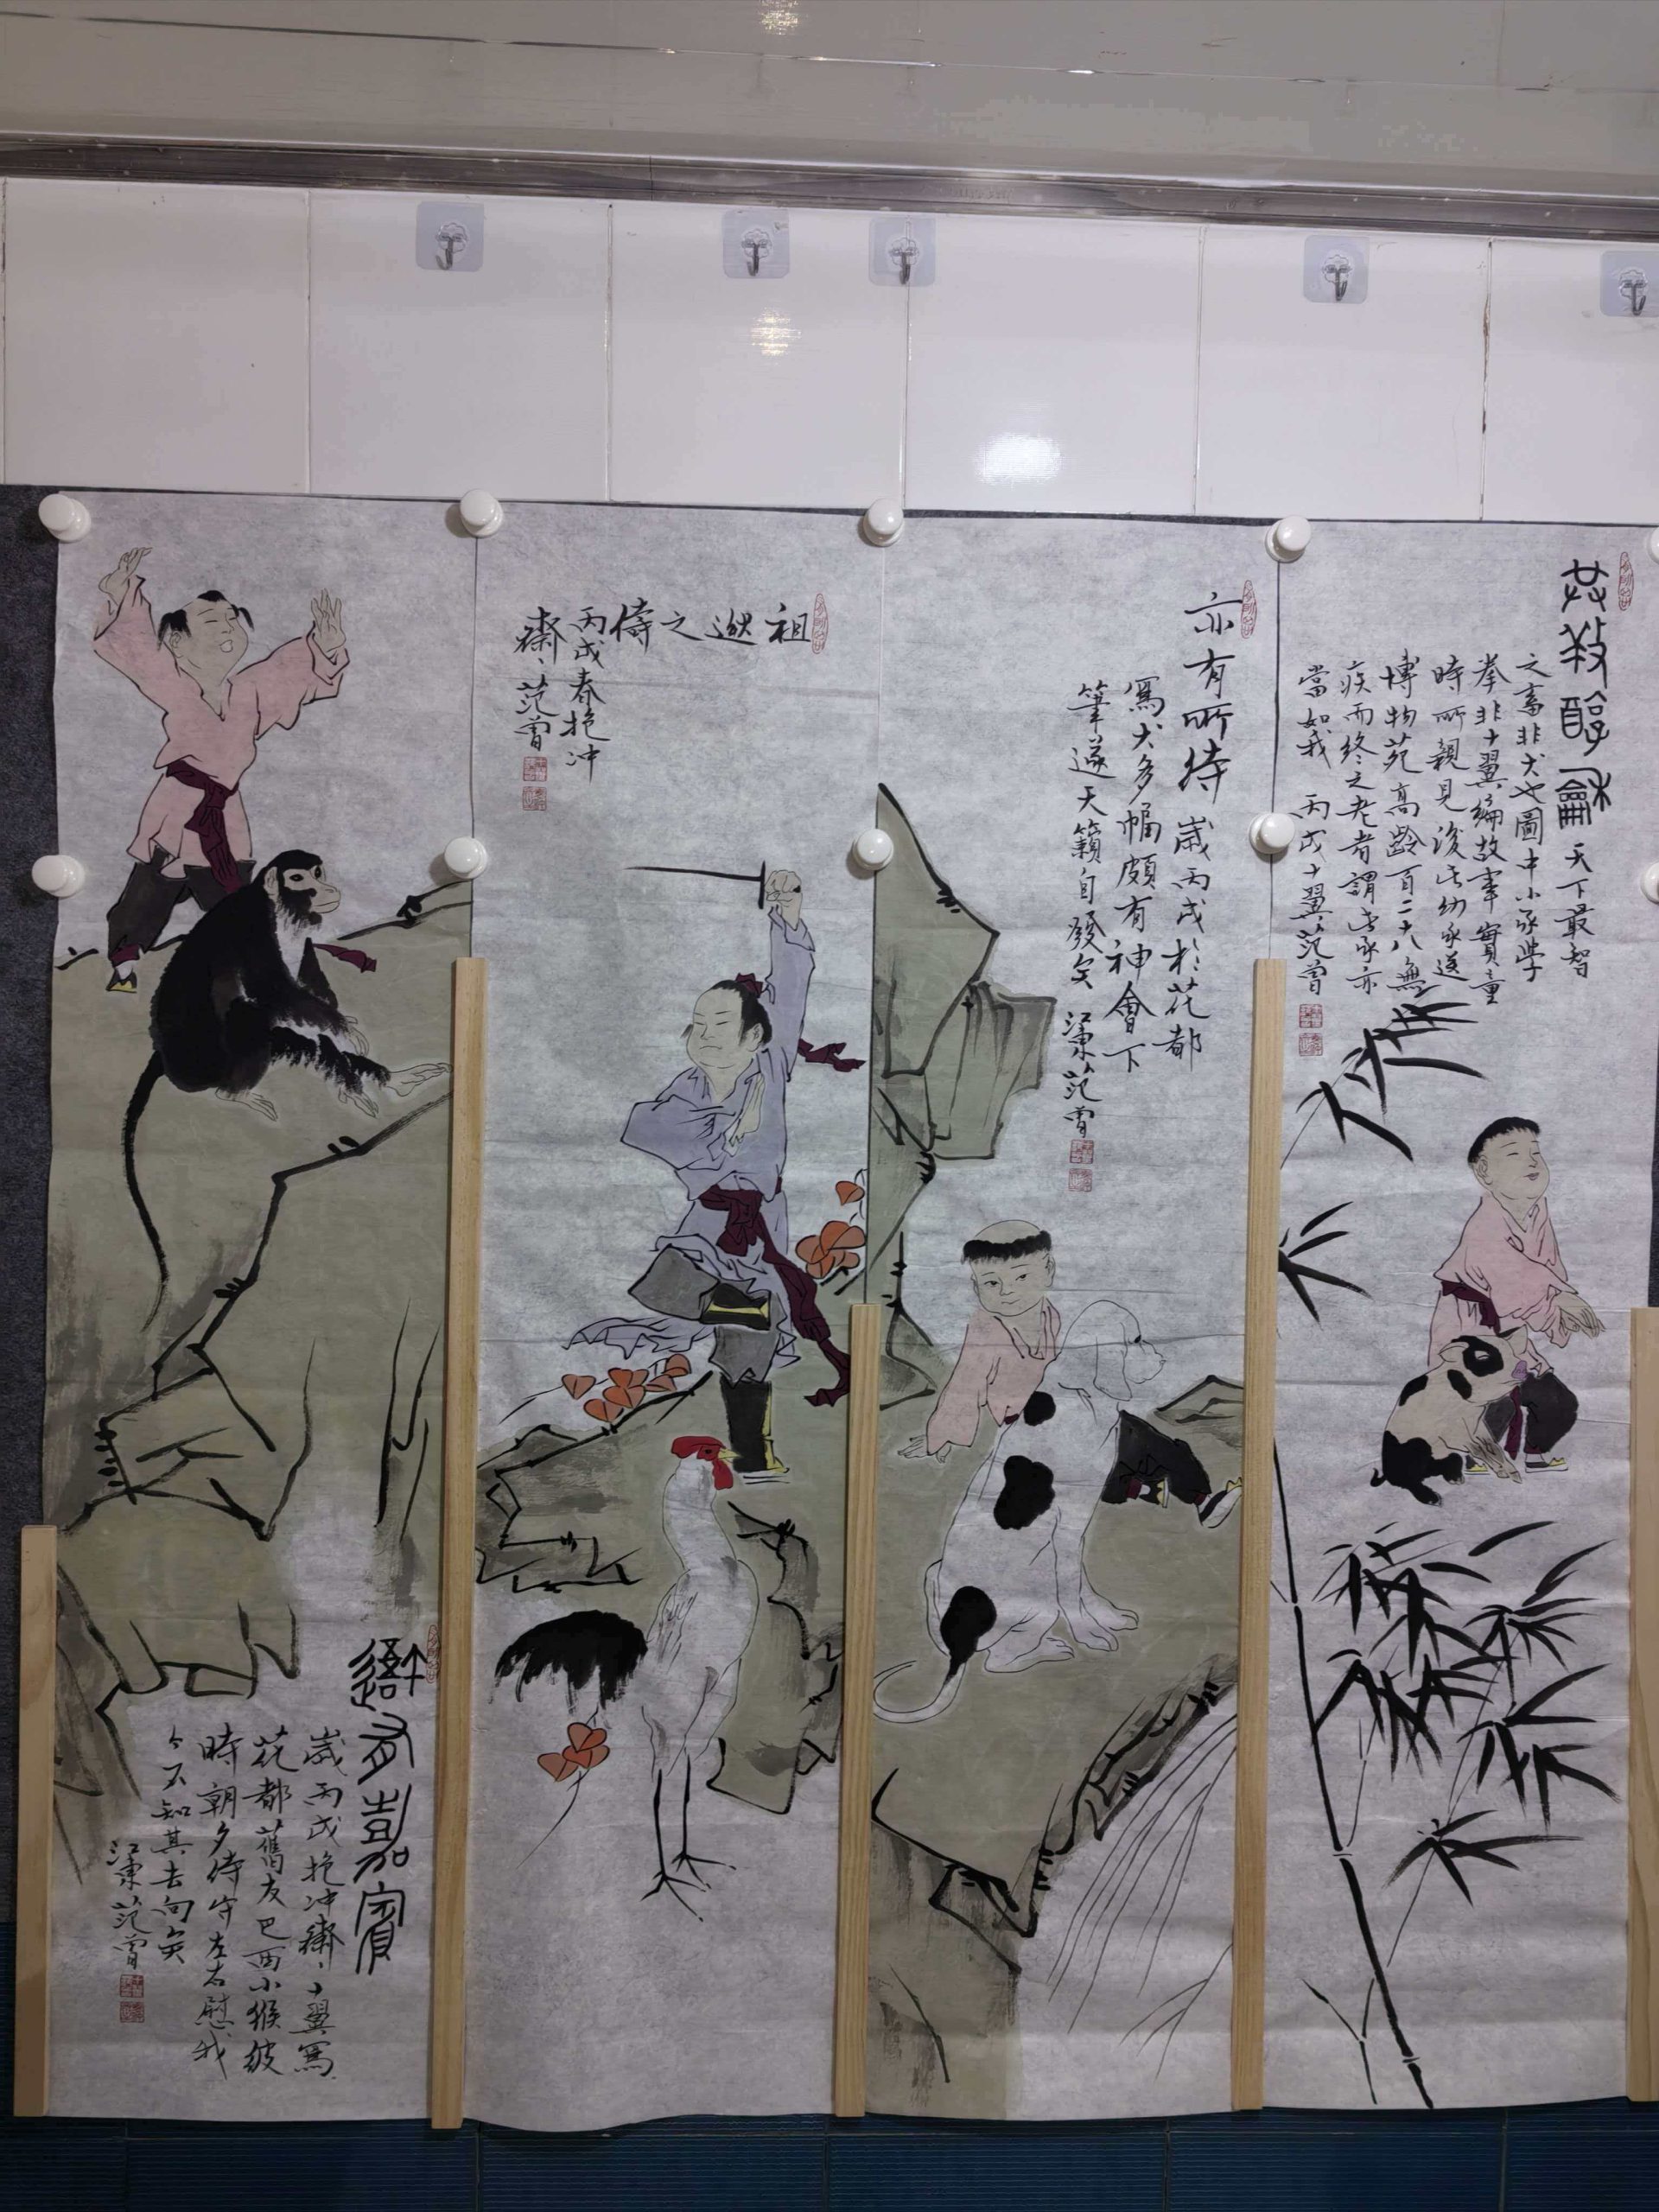 天下最智
之畜非犬也圖中小豕學
拳非十翼編故事實童
時所親見後此幼豕送
博物苑高齡百二十八無
疾而終之老者謂此豕亦
當如我 丙戌十翼范曾
亦有所待 歲丙戌於花都
寫犬多幅頗有神會下
筆遂天籟自發矣 江東范曾
祖逖之儔
丙戌春抱冲
齋 范曾
有嘉賓
歲丙戌抱冲齋十翼寫
花都舊友巴西小猴彼
時朝夕侍守左右慰我
今不知其去向矣
江東范曾